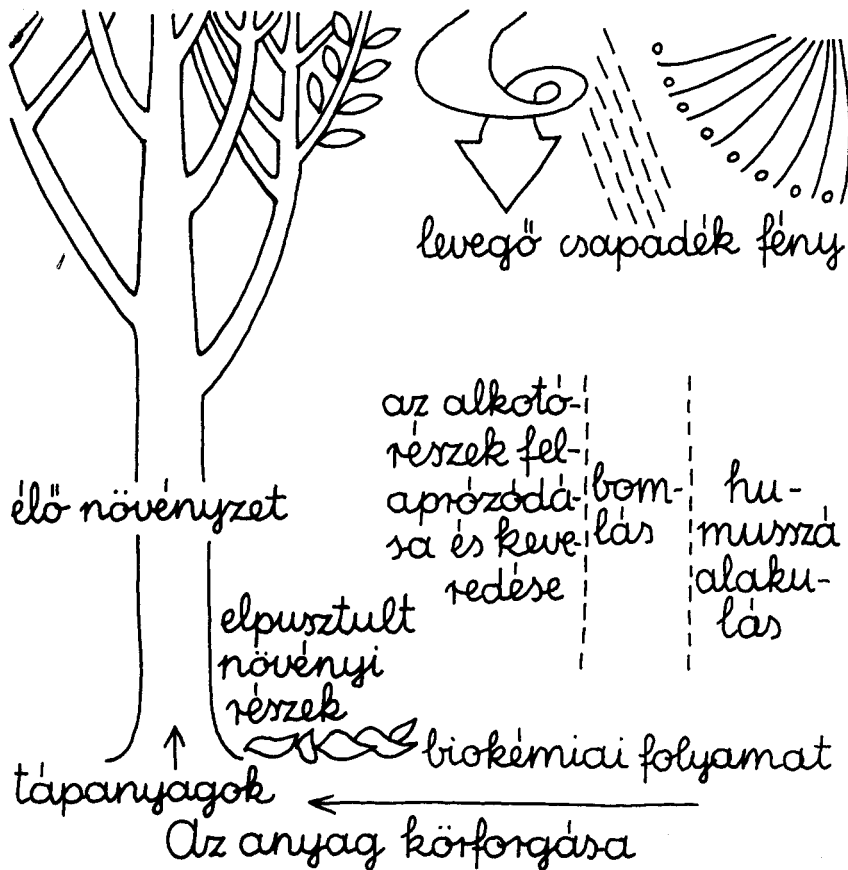 levegő csapadék fény
az alkotó-
részek fel-
aprózódá-
sa és keve-
redése
bom-
lás
hu-
musszá
alaku-
lás
élő növényzet
elpusztult
növényi
részek
biokémiai folyamat
tápanyagok
Az anyag körforgása